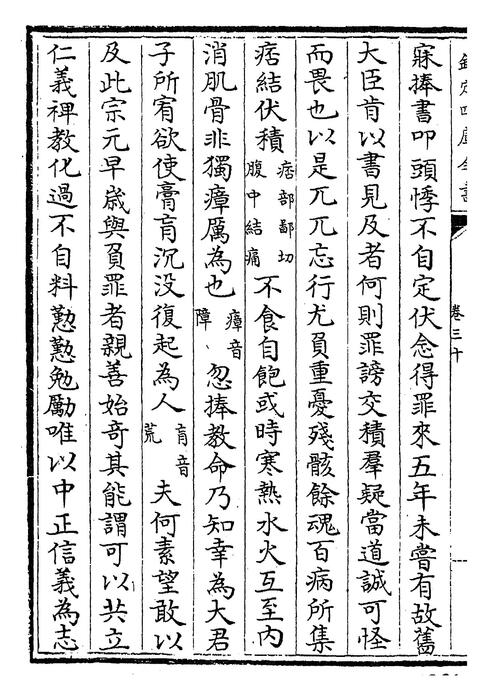 欽定四庫全書
卷三十
寐捧書叩頭悸不自定伏念得罪來五年未嘗有故舊
大臣肯以書見及者何則罪謗交積羣疑當道誠可怪
而畏也以是兀兀忘行尤負重憂殘骸餘魂百病所集
痞結伏積痞部鄙切腹中結痛不食自飽或時寒熱水火互至内
消肌骨非獨瘴厲為也瘴音障、忽捧教命乃知幸為大君
子所宥欲使膏肓沉没復起為人肓音荒夫何素望敢以
及此宗元早歲與負罪者親善始奇其能謂可以共立
仁義禆教化過不自料懃懃勉勵唯以中正信義為志